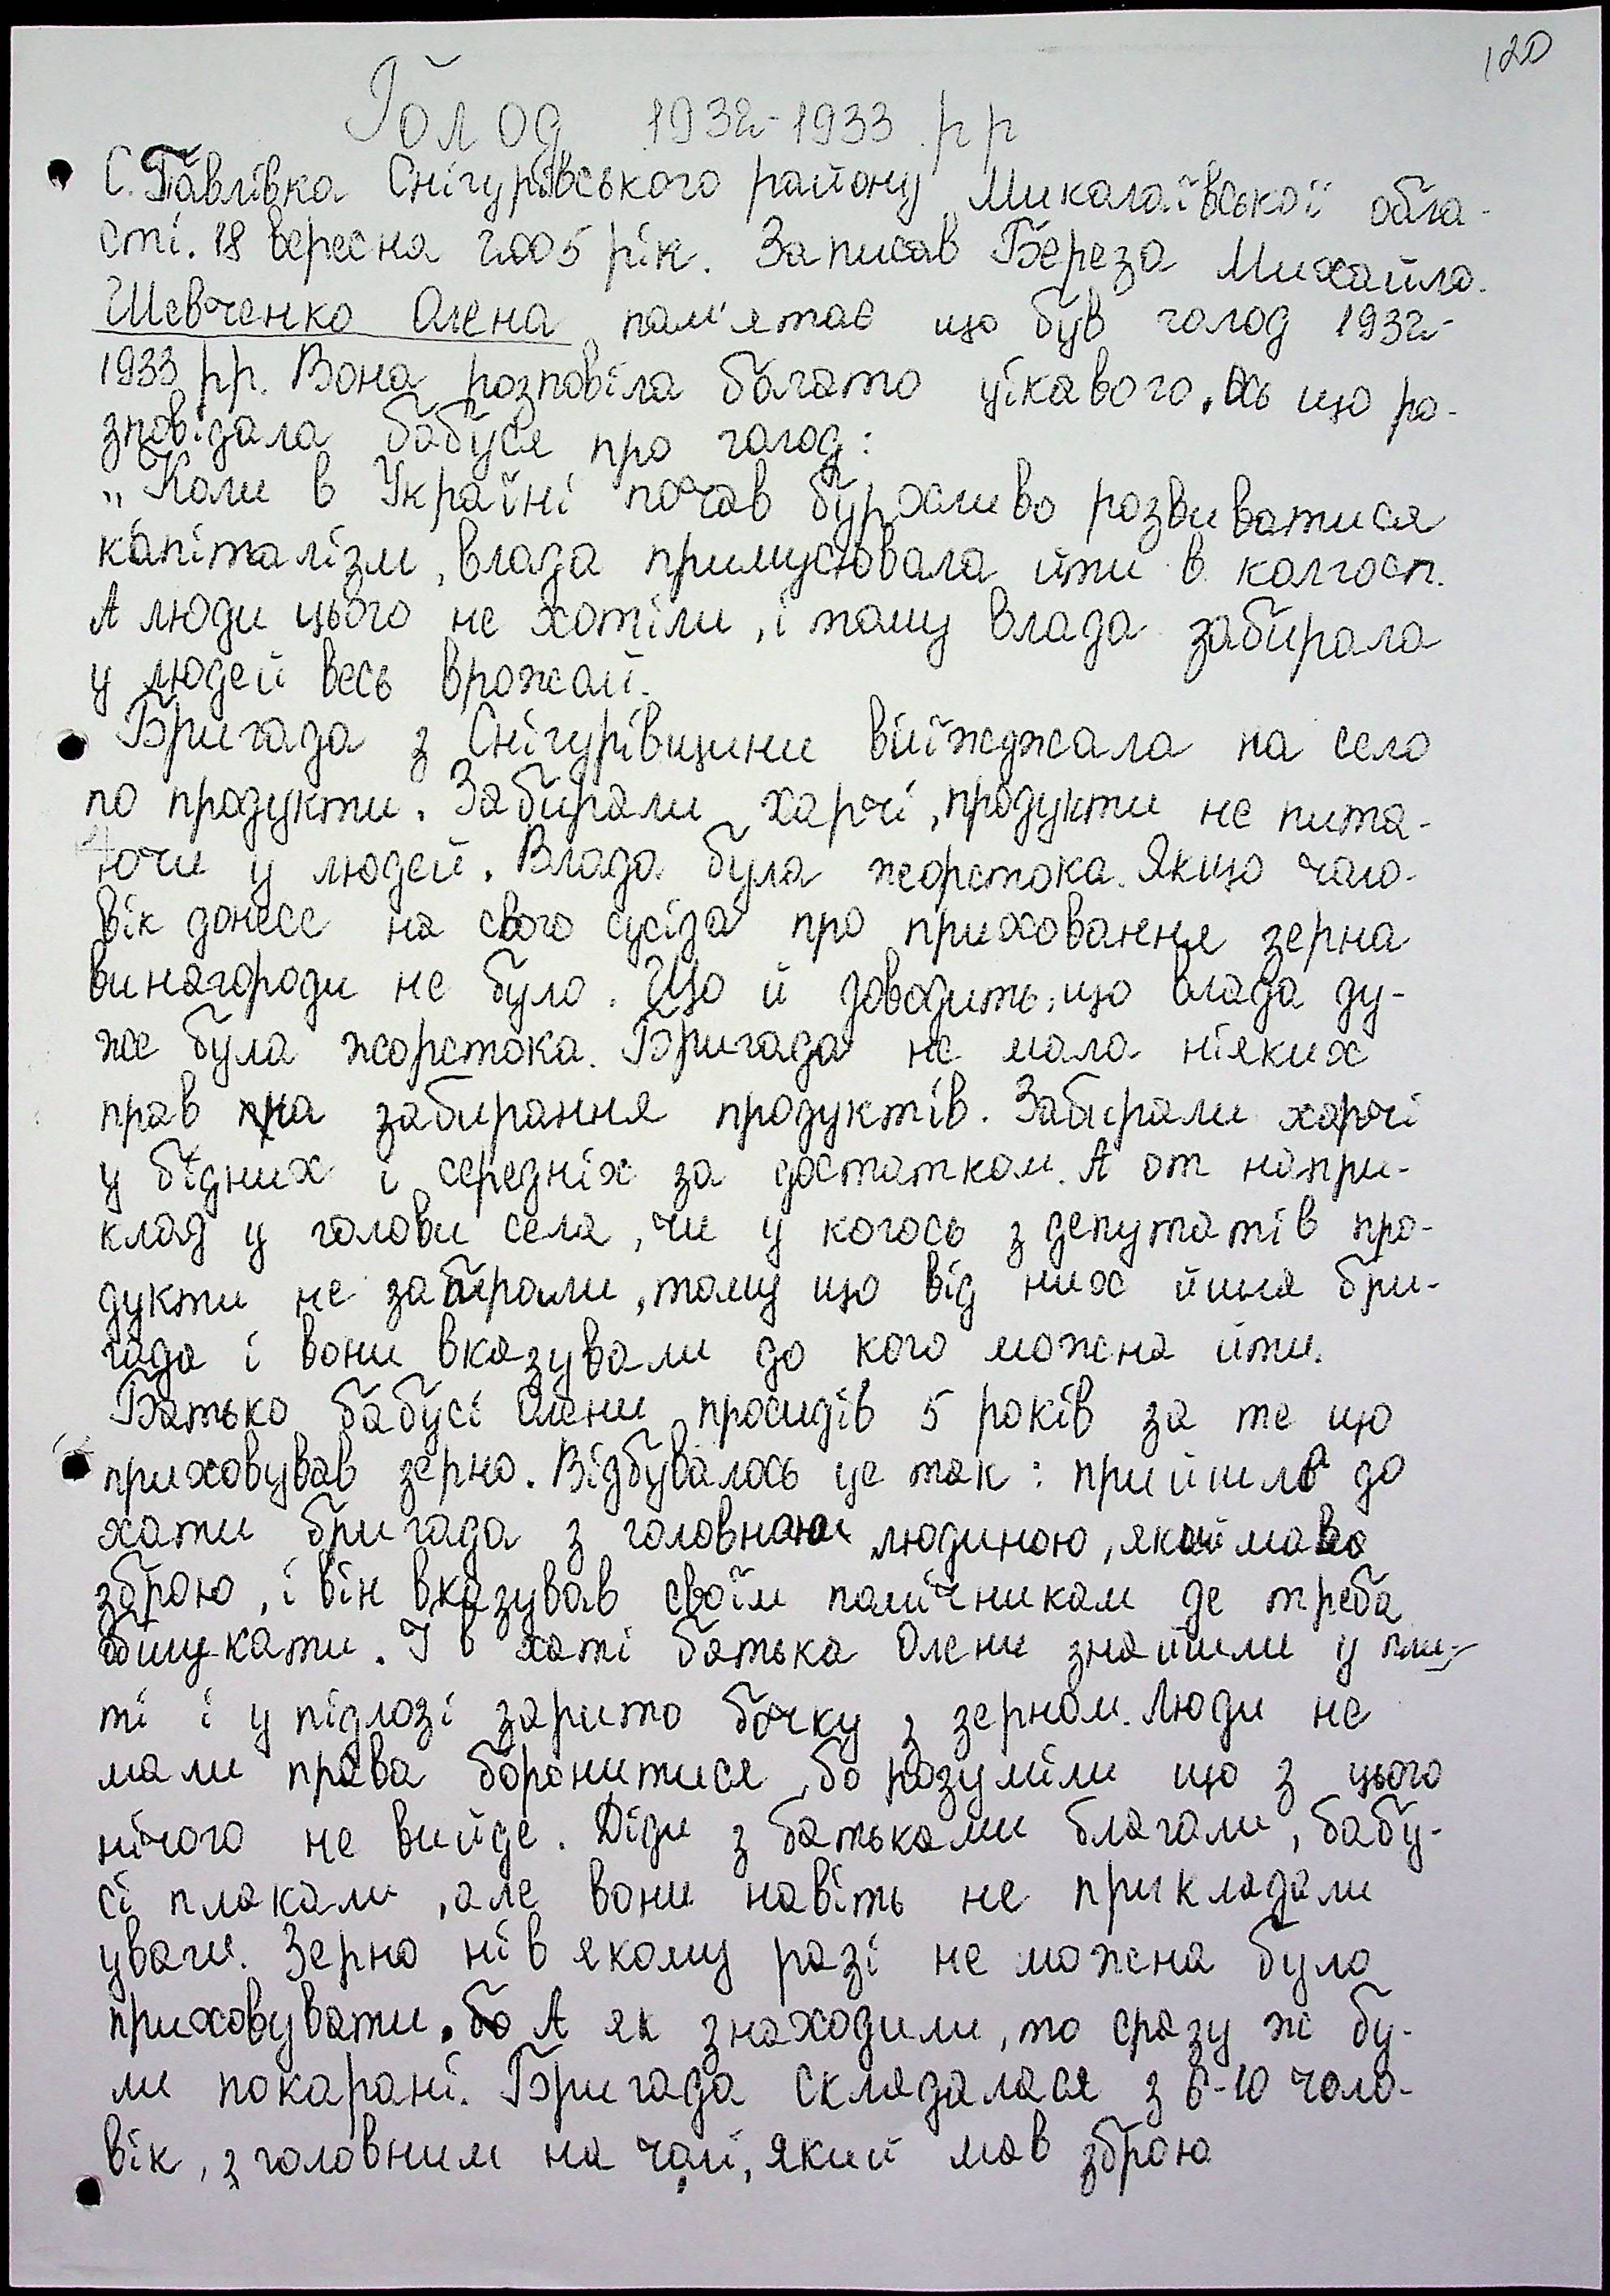 120
Голод 1932-1933 рр
С. Павлівка Снігурівського району Миколаївської обла-
сті. 18 вересня 2005 рік. Записав Береза Михайло.
Шевченко Олена пам'ятає що був голод 1932-
1933 рр. Вона розповіла багато цікавого. Ось що ро-
зповідала бабуся про голод:
„Коли в Україні почав бурхливо розвиватися
капіталізм, влада примусювала йти в колгосп.
А люди цього не хотіли, і тому влада забирала
у людей весь врожай.
Бригада з Снігурівщини виїжджала на село
по продукти. Забирали харчі, продукти не пита-
ючи у людей. Влада була жорстока. Якщо чоло-
вік донесе на свого сусіда про приховання зерна
винагороди не було. Що й доводить, що влада ду-
же була жорстока. Бригада не мала ніяких
прав на забирання продуктів. Забирали харчі
у бідних і середніх за достатком. А от напри-
клад у голови села, чи у когось з депутатів про-
дукти не забирали, тому що від них йшла бри-
гада і вони вказували до кого можна йти.
Батько бабусі Олени просидів 5 років за те що
приховував зерно. Відбувалось це так: прийшла до
хати бригада з головною людиною, яка мала
зброю, і він вказував своїм помічникам де треба
обшукати. І в хаті батька Олени знайшли у пли-
ті і у підлозі зарито бочку з зерном. Люди не
мали права боронитися, бо розуміли що з цього
нічого не вийде. Діди з батьками благали, бабу-
сі плакали, але вони навіть не прикладали
уваги. Зерно ні в якому разі не можна було
приховувати. бо А як знаходили, то сразу ж бу-
ли покарані. Бригада складалася з 6-10 чоло-
вік, з головним на чолі, який мав зброю